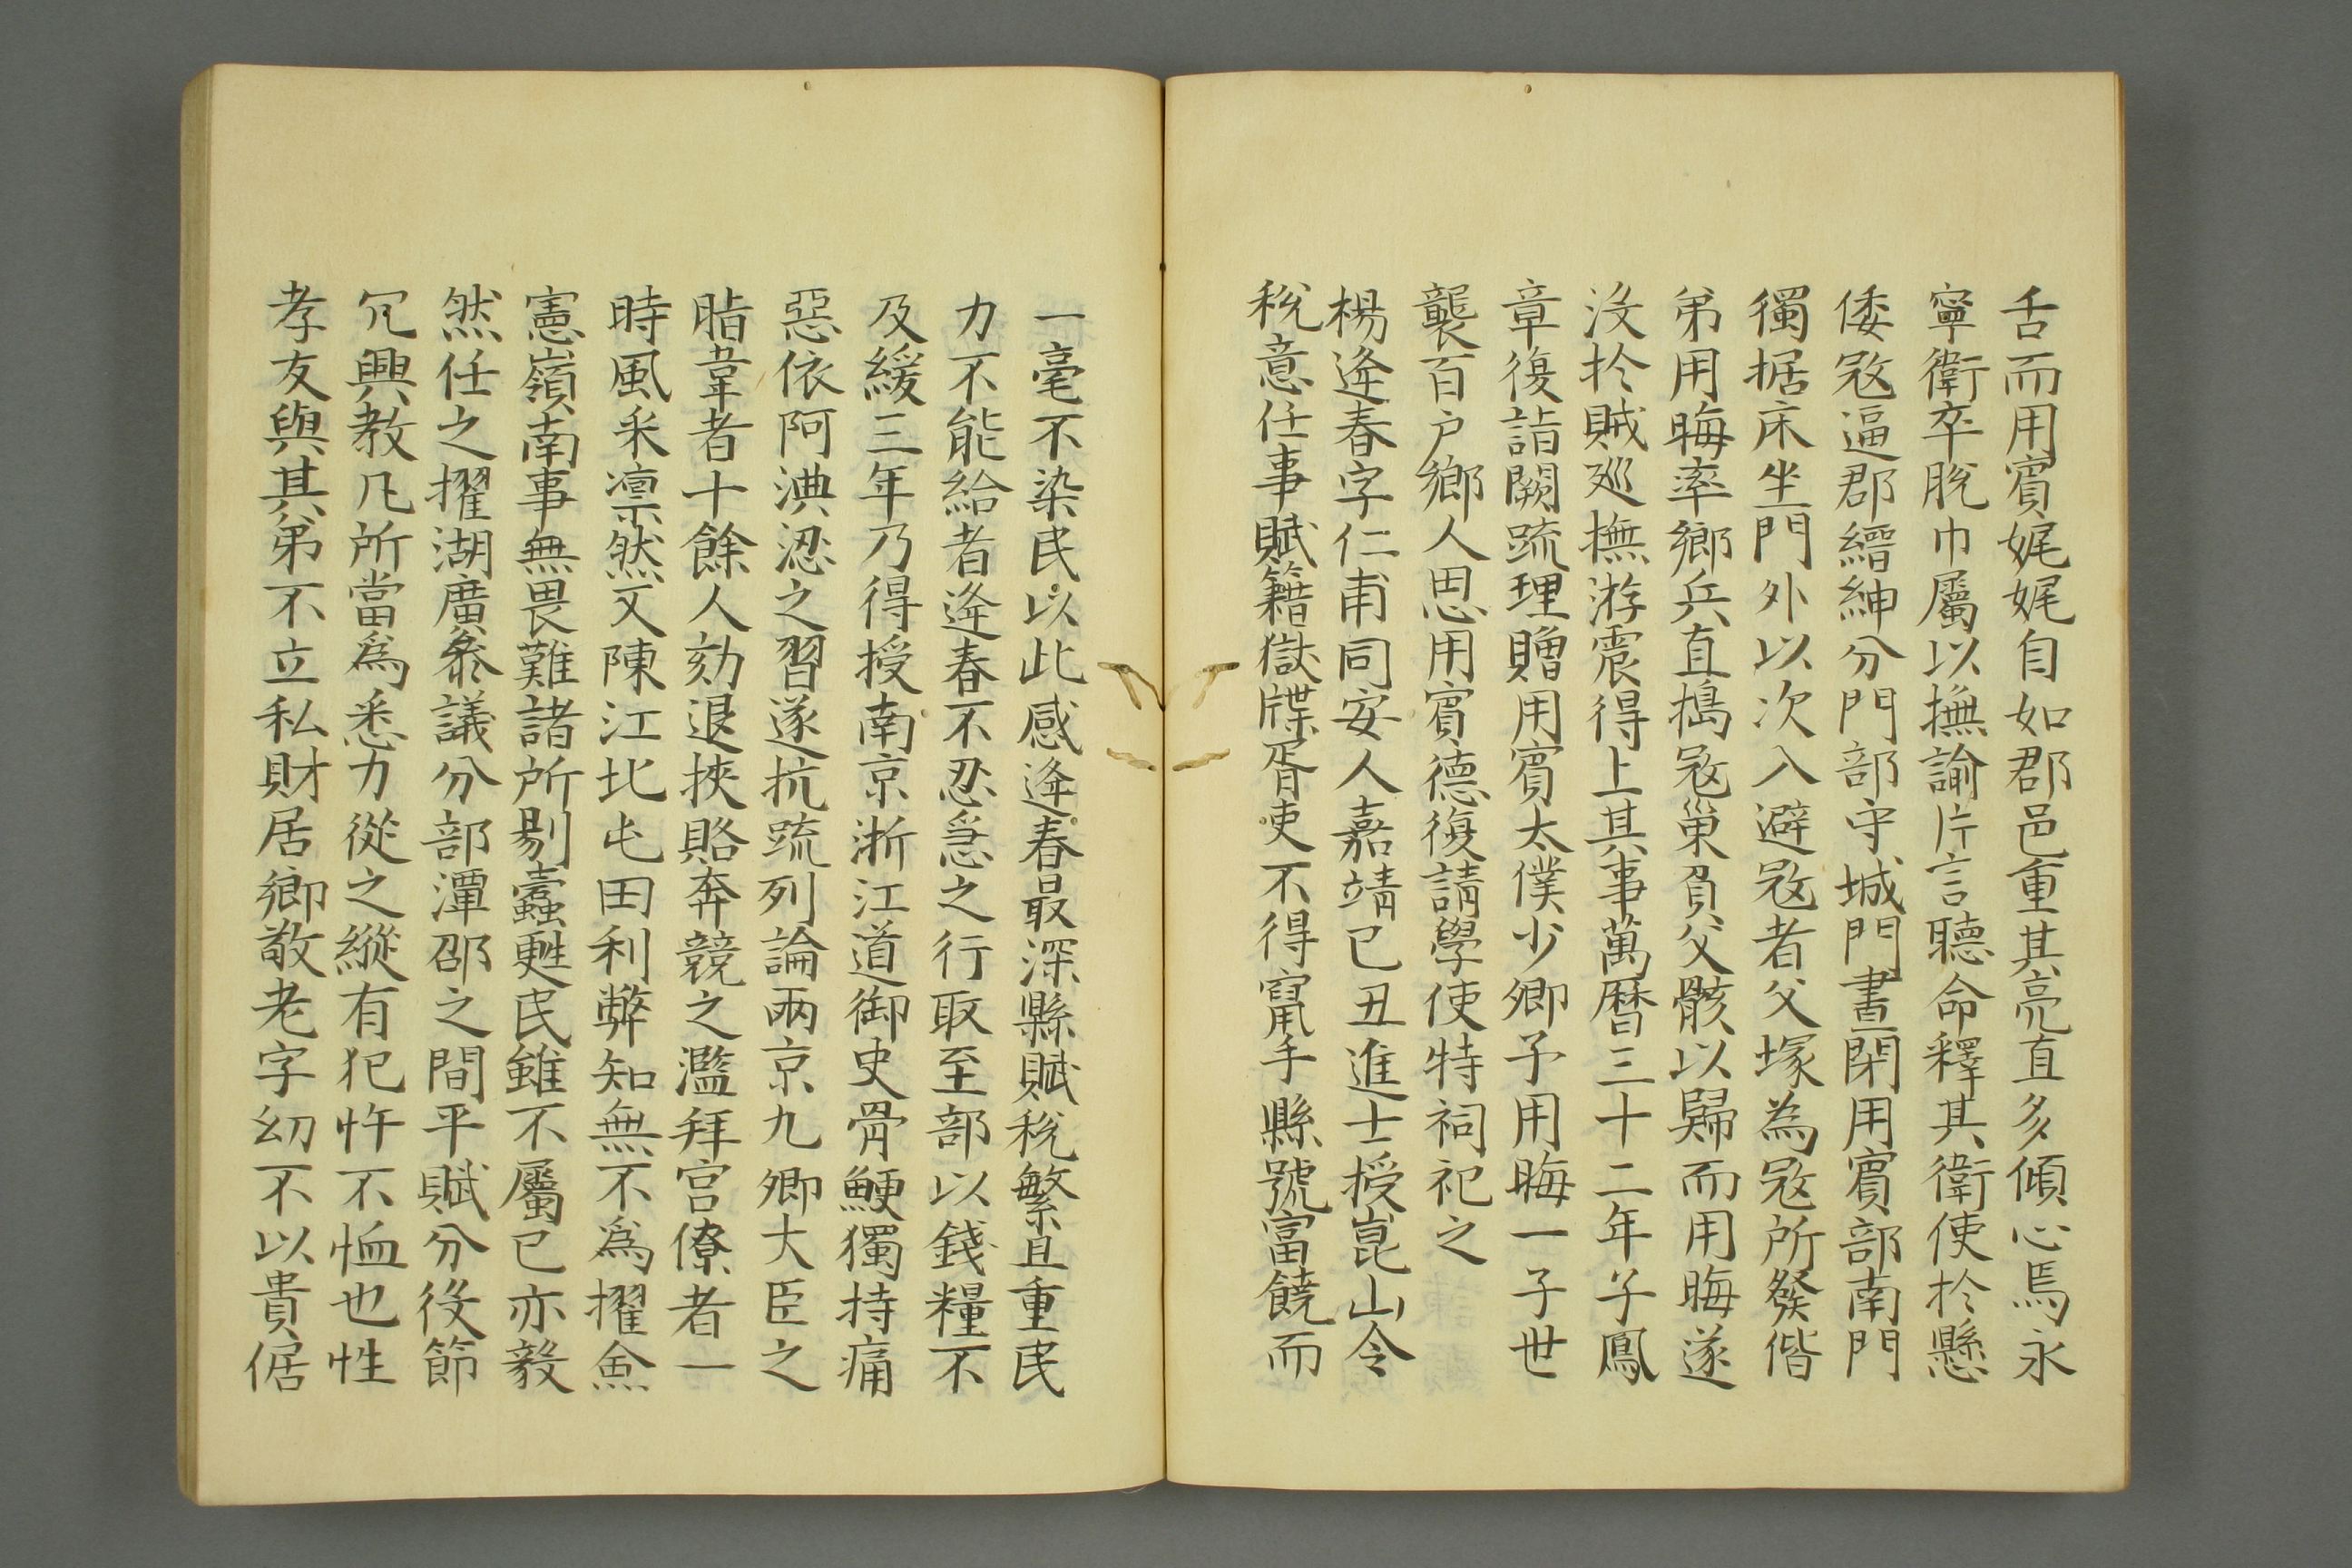 舌而用賓娓娓自如郡邑重其亮直多傾心焉永
寧衛卒脫巾屬以撫諭片言聽命釋其衛使於懸
倭宼逼郡縉紳分門部守城門晝閉用賓部南門
獨据床坐門外以次入避宼者父塚為宼所發偕
弟用晦率鄉兵直搗宼巢負父骸以歸而用晦遂
沒於賊廵撫游震得上其事萬曆三十二年子鳳
章復詣闕疏理贈用賓太僕少卿予用晦一子世
襲百戶鄉人思用賓德復請學使特祠祀之
楊逄春字仁甫同安人嘉靖己丑進士授崑山令
稅意任事賦籍獄牒胥吏不得竄手縣號富饒而
一毫不染民以此感逄春最深縣賦稅繁且重民
力不能給者逄春不忍急之行取至部以錢糧不
及緩三年乃得授南京浙江道御史骨鯁獨持痛
惡依阿淟涊之習遂抗疏列論兩京九卿大臣之
脂韋者十餘人劾退挾賂奔競之濫拜宮僚者一
時風采凛然又陳江北屯田利弊知無不爲擢僉
憲嶺南事無畏難諸所剔蠹甦民雖不屬己亦毅
然任之擢湖廣叅議分部潭邵之間平賦分役節
冗興教凡所當爲悉力從之縱有犯忤不恤也性
孝友與其弟不立私財居鄉敬老字幼不以貴倨